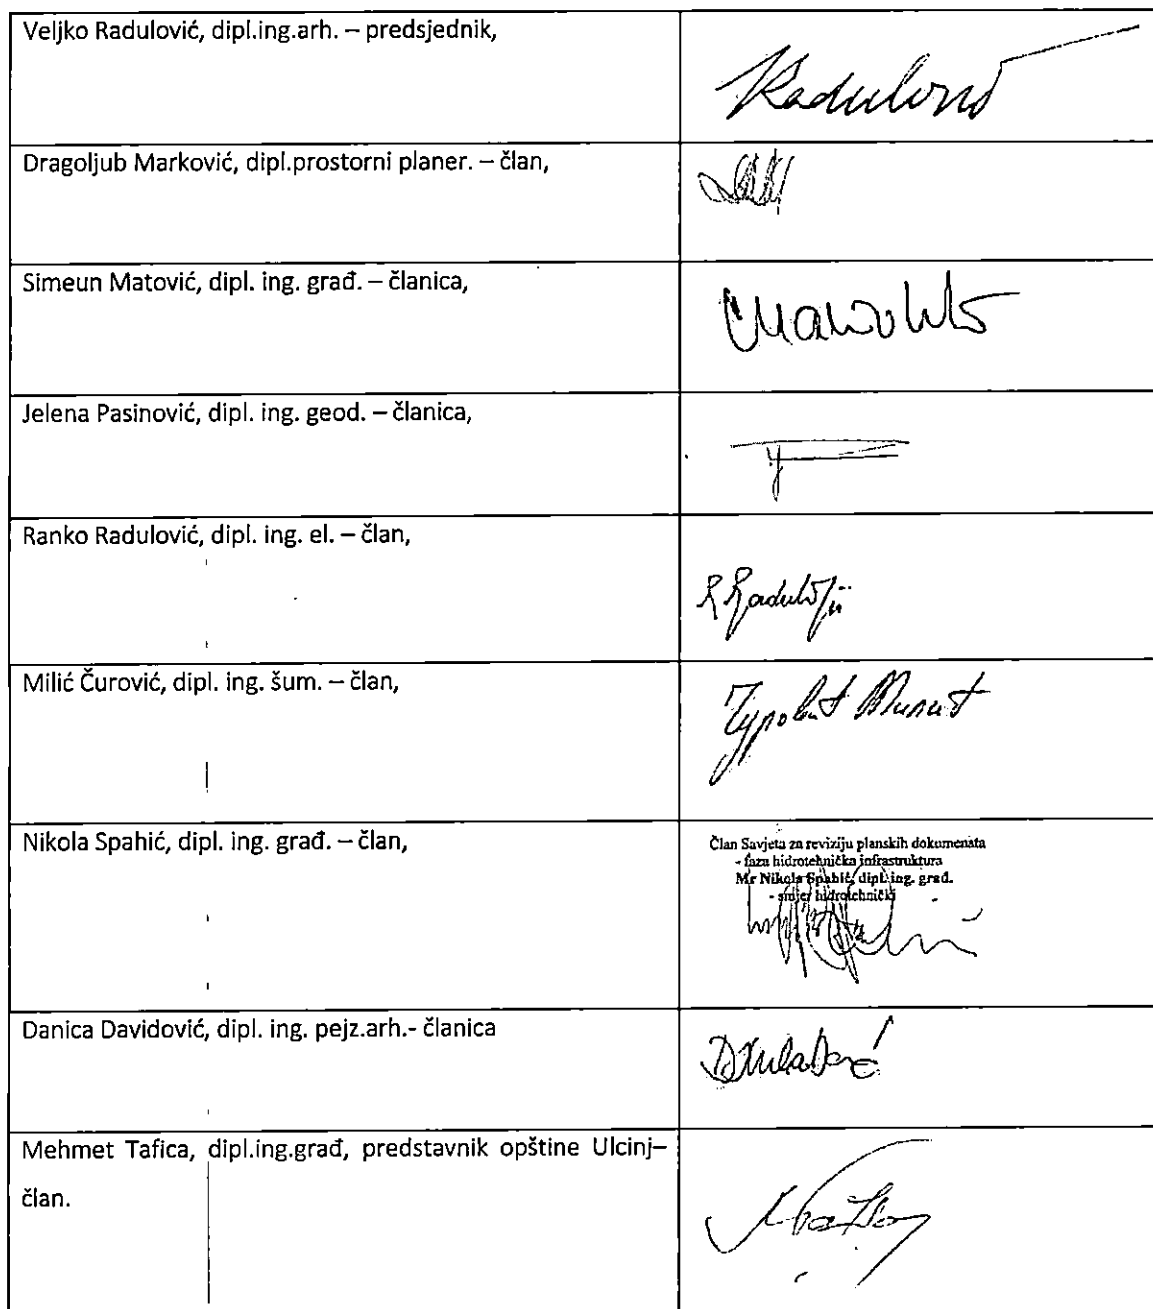 Veljko Radulović, dipl.ing.arh. – predsjednik,
Radulović
Dragoljub Marković, dipl.prostorni planer. – član,
Simeun Matović, dipl. ing. građ. – članica,
Jelena Pasinović, dipl. ing. geod. – članica,
Ranko Radulović, dipl. ing. el. – član,
Milić Čurović, dipl. ing. šum. – član,
Nikola Spahić, dipl. ing. građ. – član,
Član Savjeta za reviziju planskih dokumenata
- faza hidrotehnička infrastruktura
Mr Nikola Spahić, dipl. ing. građ.
- smjer hidrotehnički
Danica Davidović, dipl. ing. pejz.arh.- članica
Mehmet Tafica, dipl.ing.građ, predstavnik opštine Ulcinj–
član.